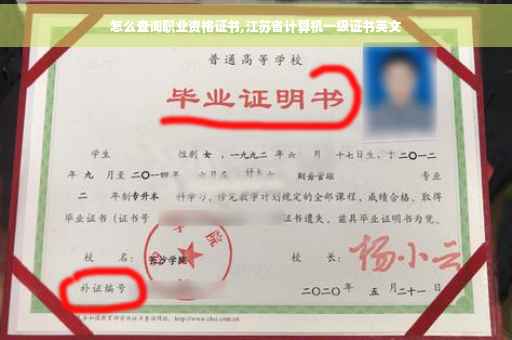 怎么查询职业资格证书,江苏省计算机一级证书英文
普通高等学校
毕业证明书
学生 性别 女，一九九二年 六 月 十七日生，于 二〇一二
年 九 月至 二〇一四 年 六月在 财务管理 专业
二 年制 专升本 科学习，修完教学计划规定的全部课程，成绩合格，取得
毕业证书（证书号 证书遗失，兹具毕业证明书为凭。
校 名： 长沙学院 校 长： 杨小云
补证编号 二〇二〇年 五 月二十一日
http://www.chsi.com.cn